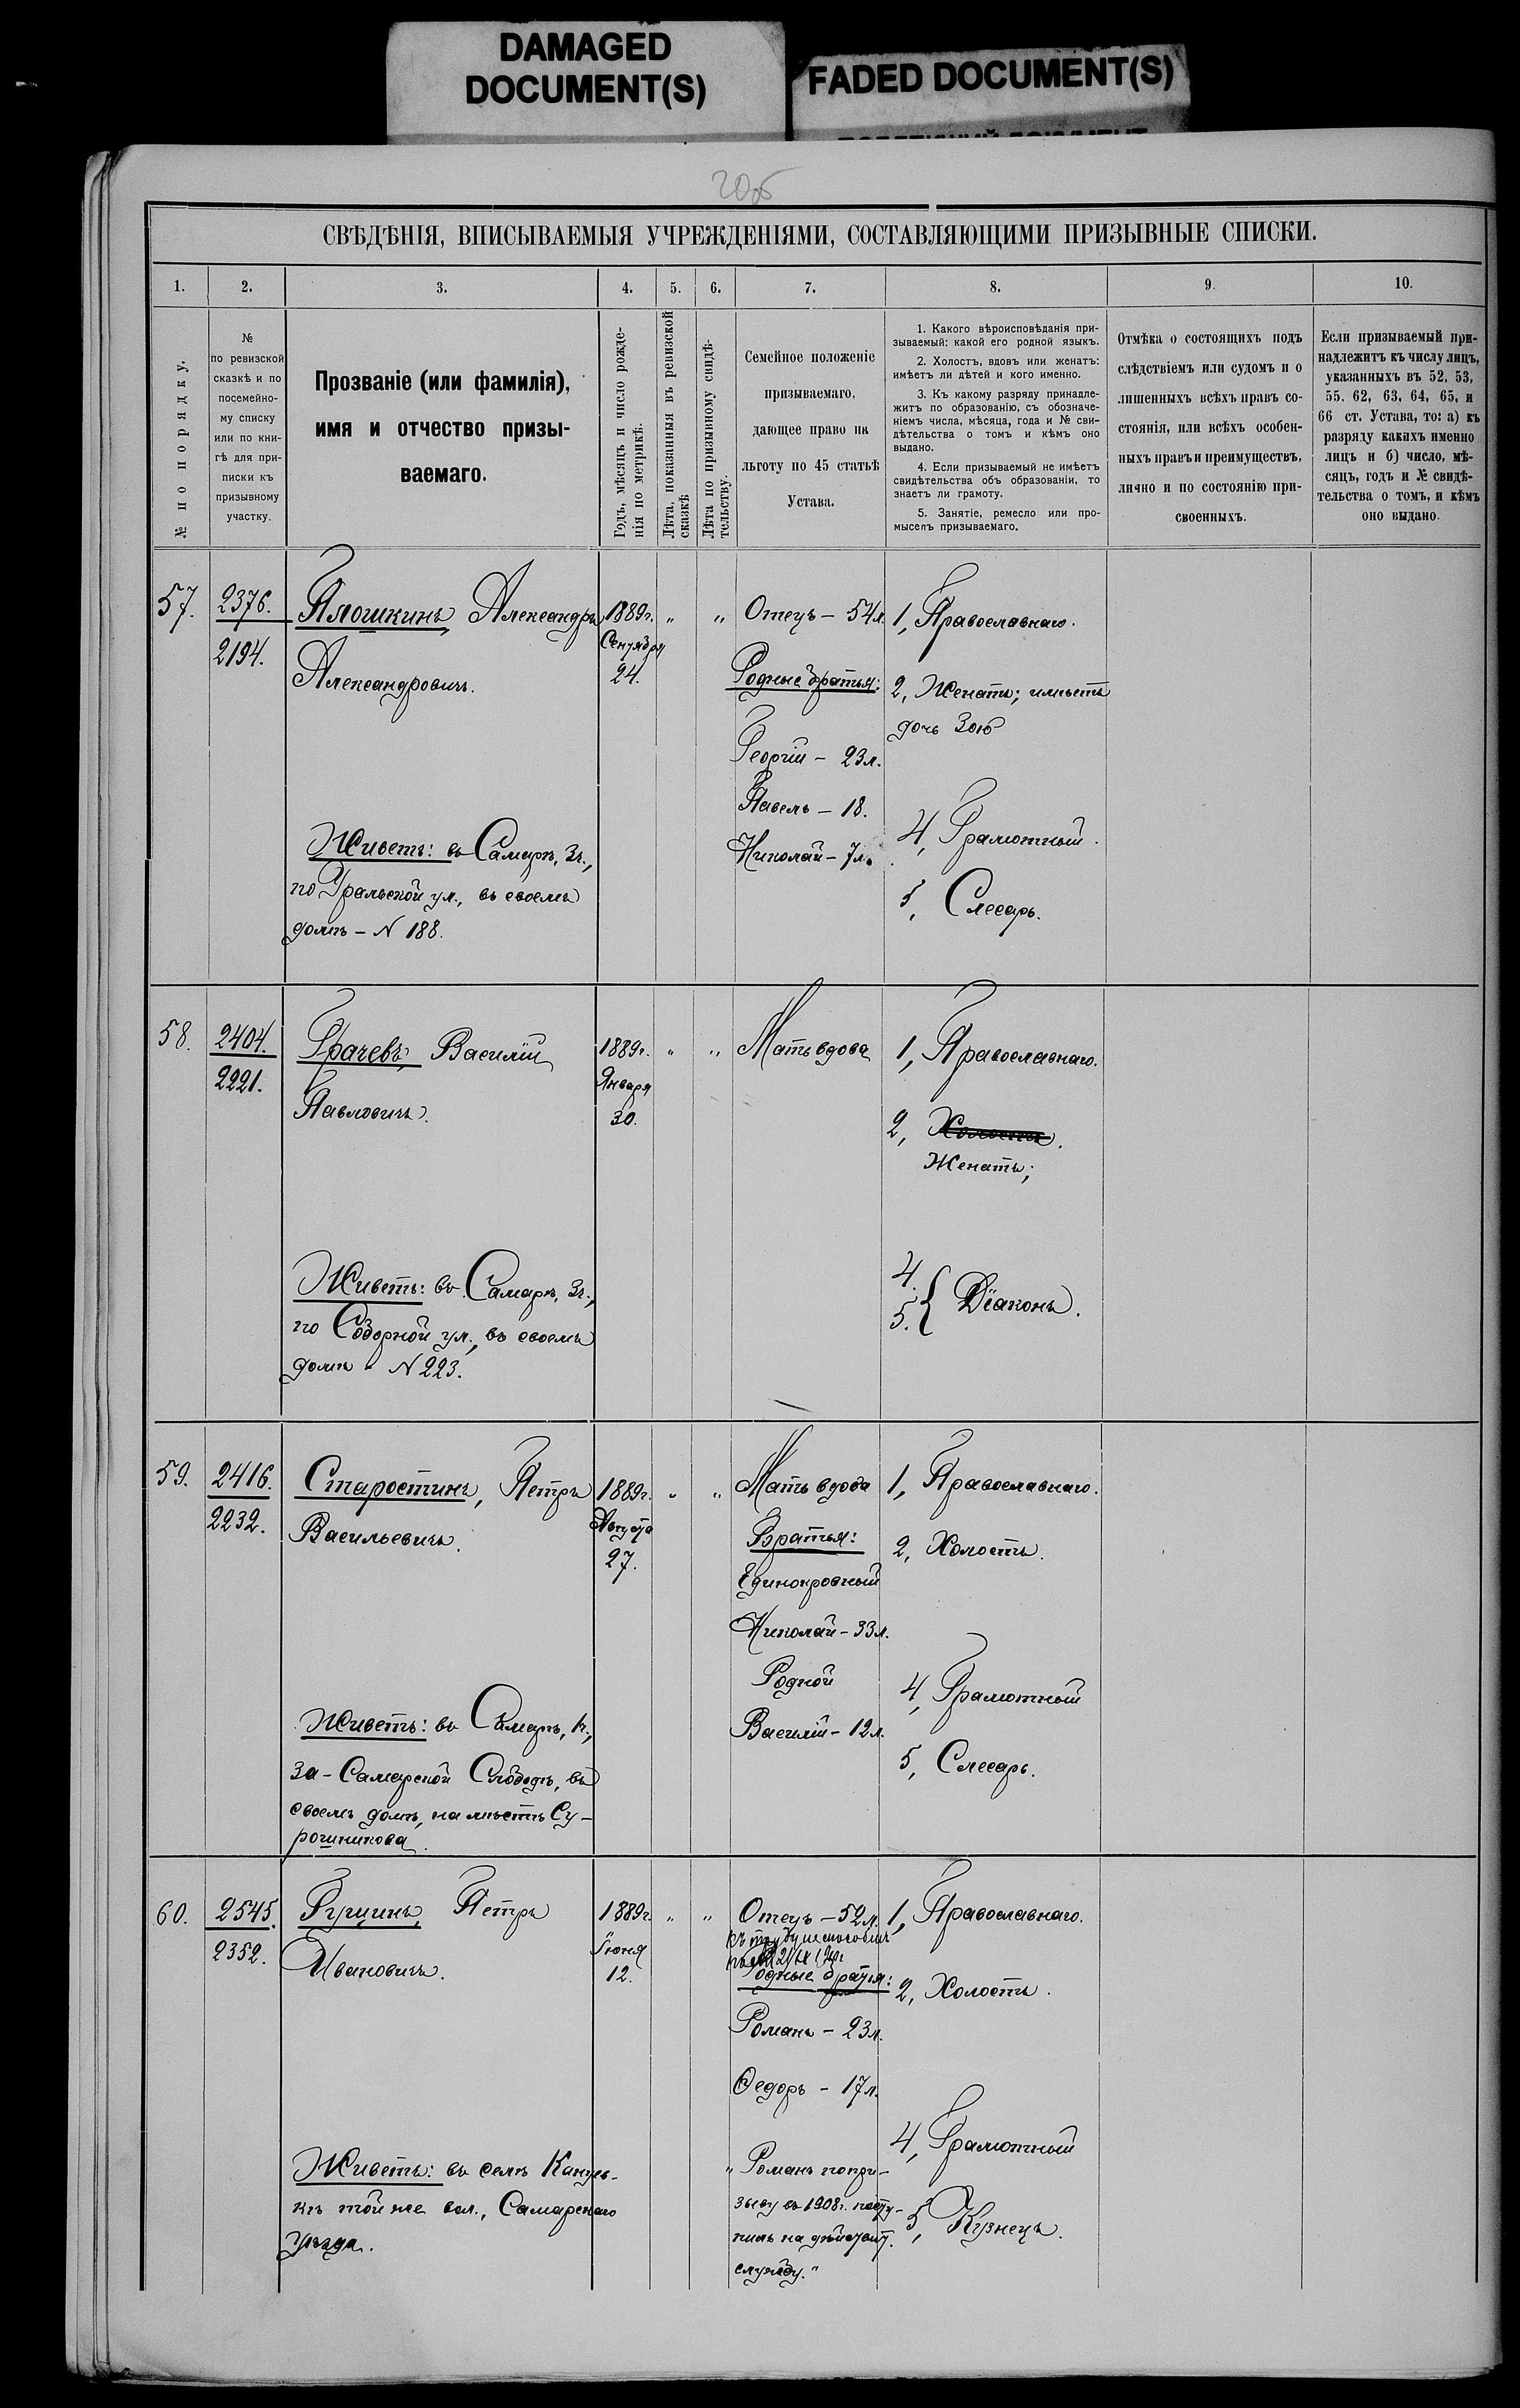 DAMAGED
DOCUMENT(S)
FADED DOCUMENT(S)
20об
СВѢДѢНІЯ, ВПИСЫВАЕМЫЯ УЧРЕЖДЕНІЯМИ, СОСТАВЛЯЮЩИМИ ПРИЗЫВНЫЕ СПИСКИ.
1.
2.
3.
4.
5.
6.
7.
8.
9.
10.
№ по порядку.
№
по ревизской
сказкѣ и по
посемейно-
му списку
или по кни-
гѣ для при-
писки къ
призывному
участку.
Прозваніе (или фамилія),
имя и отчество призы-
ваемаго.
Годъ, мѣсяцъ и число рожде-
нія по метрикѣ.
Лѣта, показанныя въ ревизской
сказкѣ
Лѣта по призывному свидѣ-
тельству.
Семейное положеніе
призываемаго,
дающее право на
льготу по 45 статьѣ
Устава.
1. Какого вѣроисповѣданія при-
зываемый: какой его родной языкъ.
2. Холостъ, вдовъ или женатъ:
имѣетъ ли дѣтей и кого именно.
3. Къ какому разряду принадле-
житъ по образованію, съ обозначе-
ніемъ числа, мѣсяца, года и № сви-
дѣтельства о томъ и кѣмъ оно
выдано.
4. Если призываемый не имѣетъ
свидѣтельства объ образованіи, то
знаетъ ли грамоту.
5. Занятіе, ремесло или про-
мыселъ призываемаго.
Отмѣка о состоящихъ подъ
слѣдствіемъ или судомъ и о
лишенныхъ всѣхъ правъ со-
стоянія, или всѣхъ особен-
ныхъ правъ и преимуществъ,
лично и по состоянію при-
своенныхъ.
Если призываемый при-
надлежитъ къ числу лицъ,
указанныхъ въ 52, 53,
55. 62, 63, 64, 65, и
66 ст. Устава, то: а) къ
разряду какихъ именно
лицъ и б) число, мѣ-
сяцъ, годъ и № свидѣ-
тельства о томъ, и кѣмъ
оно выдано.
57.
2376.
2194.
Алошкинъ, Александръ
Александровичъ.
Живетъ: въ Самарѣ, 3ч.,
по Уральской ул., въ своемъ
домѣ – N 188.
1889г.
Сентября
24.
"
"
Отецъ – 54л.
Родные братья:
Георгій – 23л.
Павелъ – 18.
Николай – 7л.
1, Православнаго.
2, Женатъ; имѣетъ
дочь Зою
4, Грамотный.
5, Слесарь.
58.
2404.
2221.
Грачевъ, Василій
Павловичъ.
Живетъ: въ Самарѣ, 3ч.,
по Соборной ул., въ своемъ
домѣ – N 223.
1889г.
Января
30.
"
"
Мать вдова
1, Православнаго.
2, Холостъ.
Женатъ;
4.
5. { Діаконъ.
59.
2416.
2232.
Старостинъ, Петръ
Васильевичъ.
Живетъ: въ Самарѣ, 1ч.,
За-Самарской Слободѣ, въ
своемъ домѣ, на мѣстѣ Су-
рошникова.
1889г.
Августа
27.
"
"
Мать вдова
Братья:
Единокровный
Николай – 33л.
Родной
Василій – 12л.
1, Православнаго.
2, Холостъ.
4, Грамотный
5, Слесарь.
60.
2545.
2352.
Ивановичъ.
Петръ
Живетъ: въ селѣ
той же вол., Самарскаго
уѣзда.
1889г.
Іюня
12.
"
"
Отецъ – 52л.
къ труду
Родные братья:
Романъ – 23л.
Ѳедоръ – 17л.
„Романъ по при-
зыву въ 1908г. посту-
пилъ на дѣйствит.
службу."
1, Православнаго.
2, Холостъ.
4, Грамотный
5, Кузнецъ.